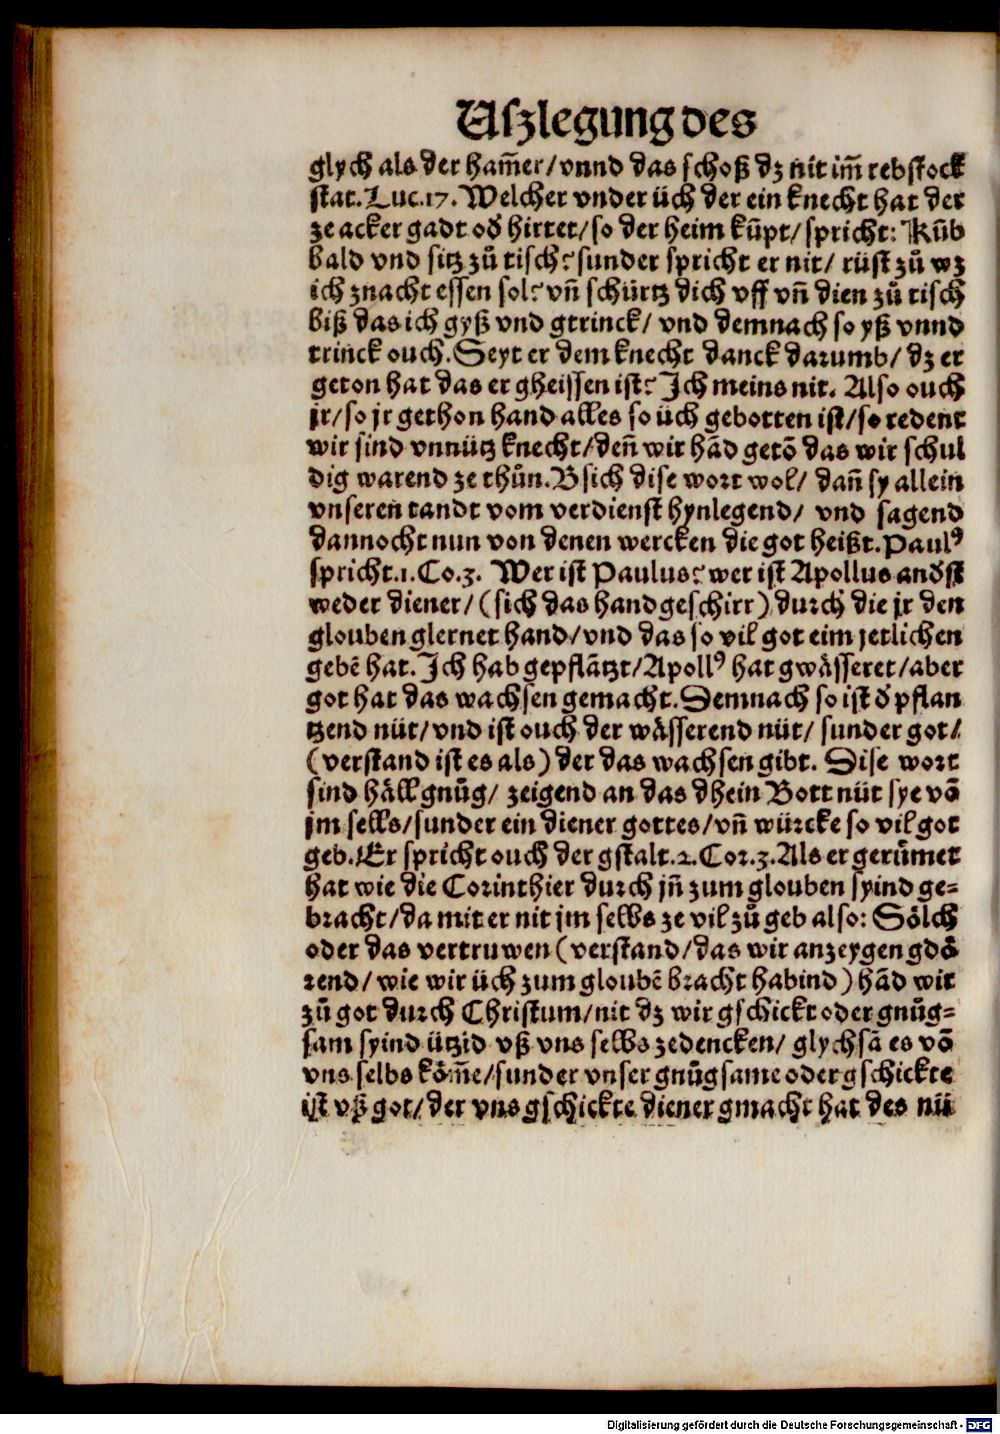 Uſzlegung des
glych als der ham̄er/vnnd das ſchoß dz nit im̄ rebſtock
ſtat. Luc.17. Welcher vnder üch der ein knecht hat der
ze acker gadt od̓ hirtet/ſo der heim kūpt/ ſpricht: Kūb
bald vnd ſitz zů tiſch? ſunder ſpricht er nit/ rüſt zů wz
ich znacht eſſen ſol? vn̄ ſchürtz dich vff vn̄ dien zů tiſch
biß das ich gyß vnd gtrinck/ vnd demnach ſo yß vnnd
trinck ouch. Seyt er dem knecht danck darumb/ dz er
geton hat das er gheiſſen iſt? Ich meins nit. Alſo ouch
jr/ſo jr gethon hand alles ſo üch gebotten iſt/ſo redent
wir ſind vnnütz knecht/den̄ wir hād getō das wir ſchul
dig warend ze thůn. Bſich diſe wort wol/ dan̄ ſy allein
vnſeren tandt vom verdienſt hynlegend/ vnd ſagend
dannocht nun von denen wercken die got heißt. Paulꝰ
ſpricht.1.Co.3. Wer iſt Paulus? wer iſt Apollus and̓ſt
weder diener/(ſich das handgeſchirr) durch die jr den
glouben glernet hand/vnd das ſo vil got eim jetlichen
gebē hat. Ich hab gepflātzt/Apollꝰ hat gwäſſeret/aber
got hat das wachſen gemacht. Demnach ſo iſt d̓ pflan
tzend nüt/vnd iſt ouch der wäſſerend nüt/ ſunder got/
(verſtand iſt es als) der das wachſen gibt. Diſe wort
ſind häll gnůg/ zeigend an das dhein Bott nüt ſye vō
jm ſelbs/ſunder ein diener gottes/vn̄ würcke ſo vil got
geb. Er ſpricht ouch der gſtalt.2.Cor.3. Als er gerůmet
hat wie die Corinthier durch jn̄ zum glouben ſyind ge⸗
bracht/da mit er nit jm ſelbs ze vil zů geb alſo: Sölch
oder das vertruwen (verſtand/das wir anzeygen gdö
rend/ wie wir üch zum gloubē bracht habind) hād wir
zů got durch Chriſtum/nit dz wir gſchickt oder gnůg⸗
ſam ſyind ützid vß vns ſelbs zedencken/ glychſā es vō
vns ſelbs köm̄e/ſunder vnſer gnůgſame oder gſchickte
iſt vß got/der vns gſchickte diener gmacht hat des nü
Digitalisierung gefördert durch die Deutsche Forschungsgemeinschaft - DFG